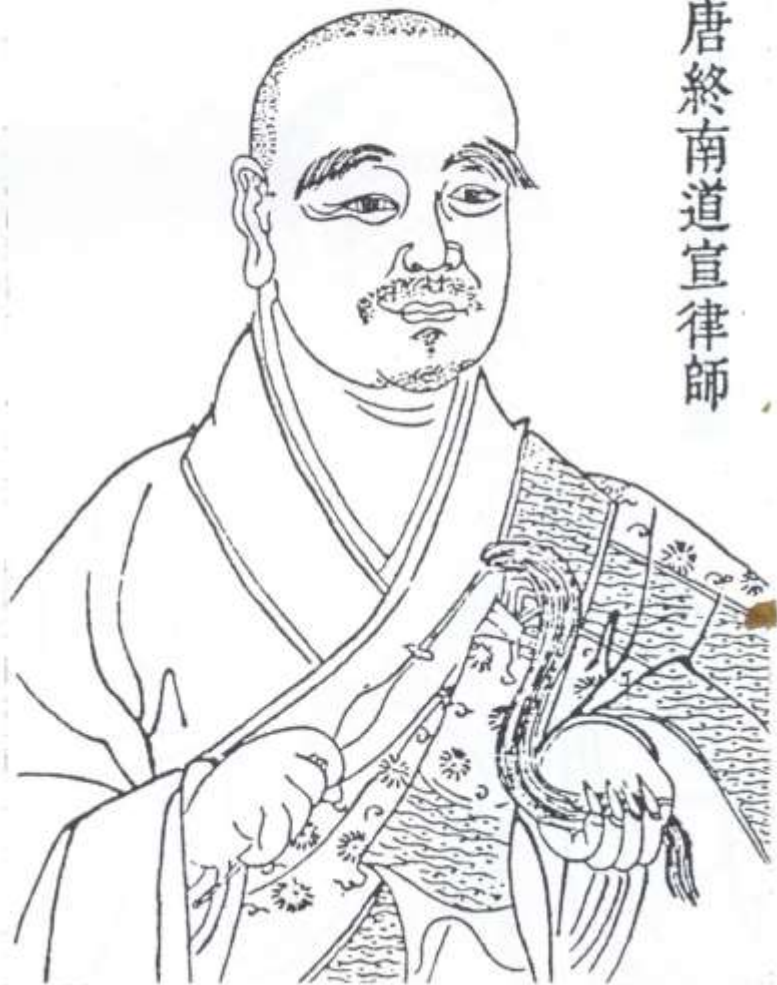 唐終南道宣律師